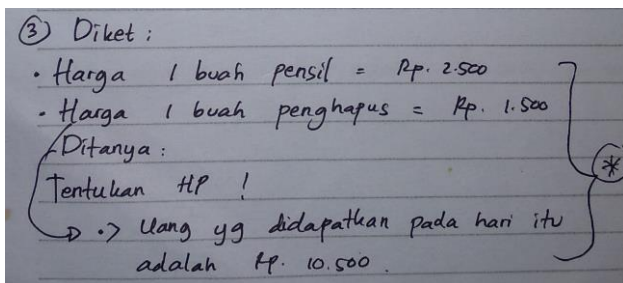 ③ Diket :
• Harga 1 buah pensil = Rp. 2.500
• Harga 1 buah penghapus = Rp. 1.500
Ditanya :
Tentukan HP !
•> Uang yg didapatkan pada hari itu
adalah Rp. 10.500.
*